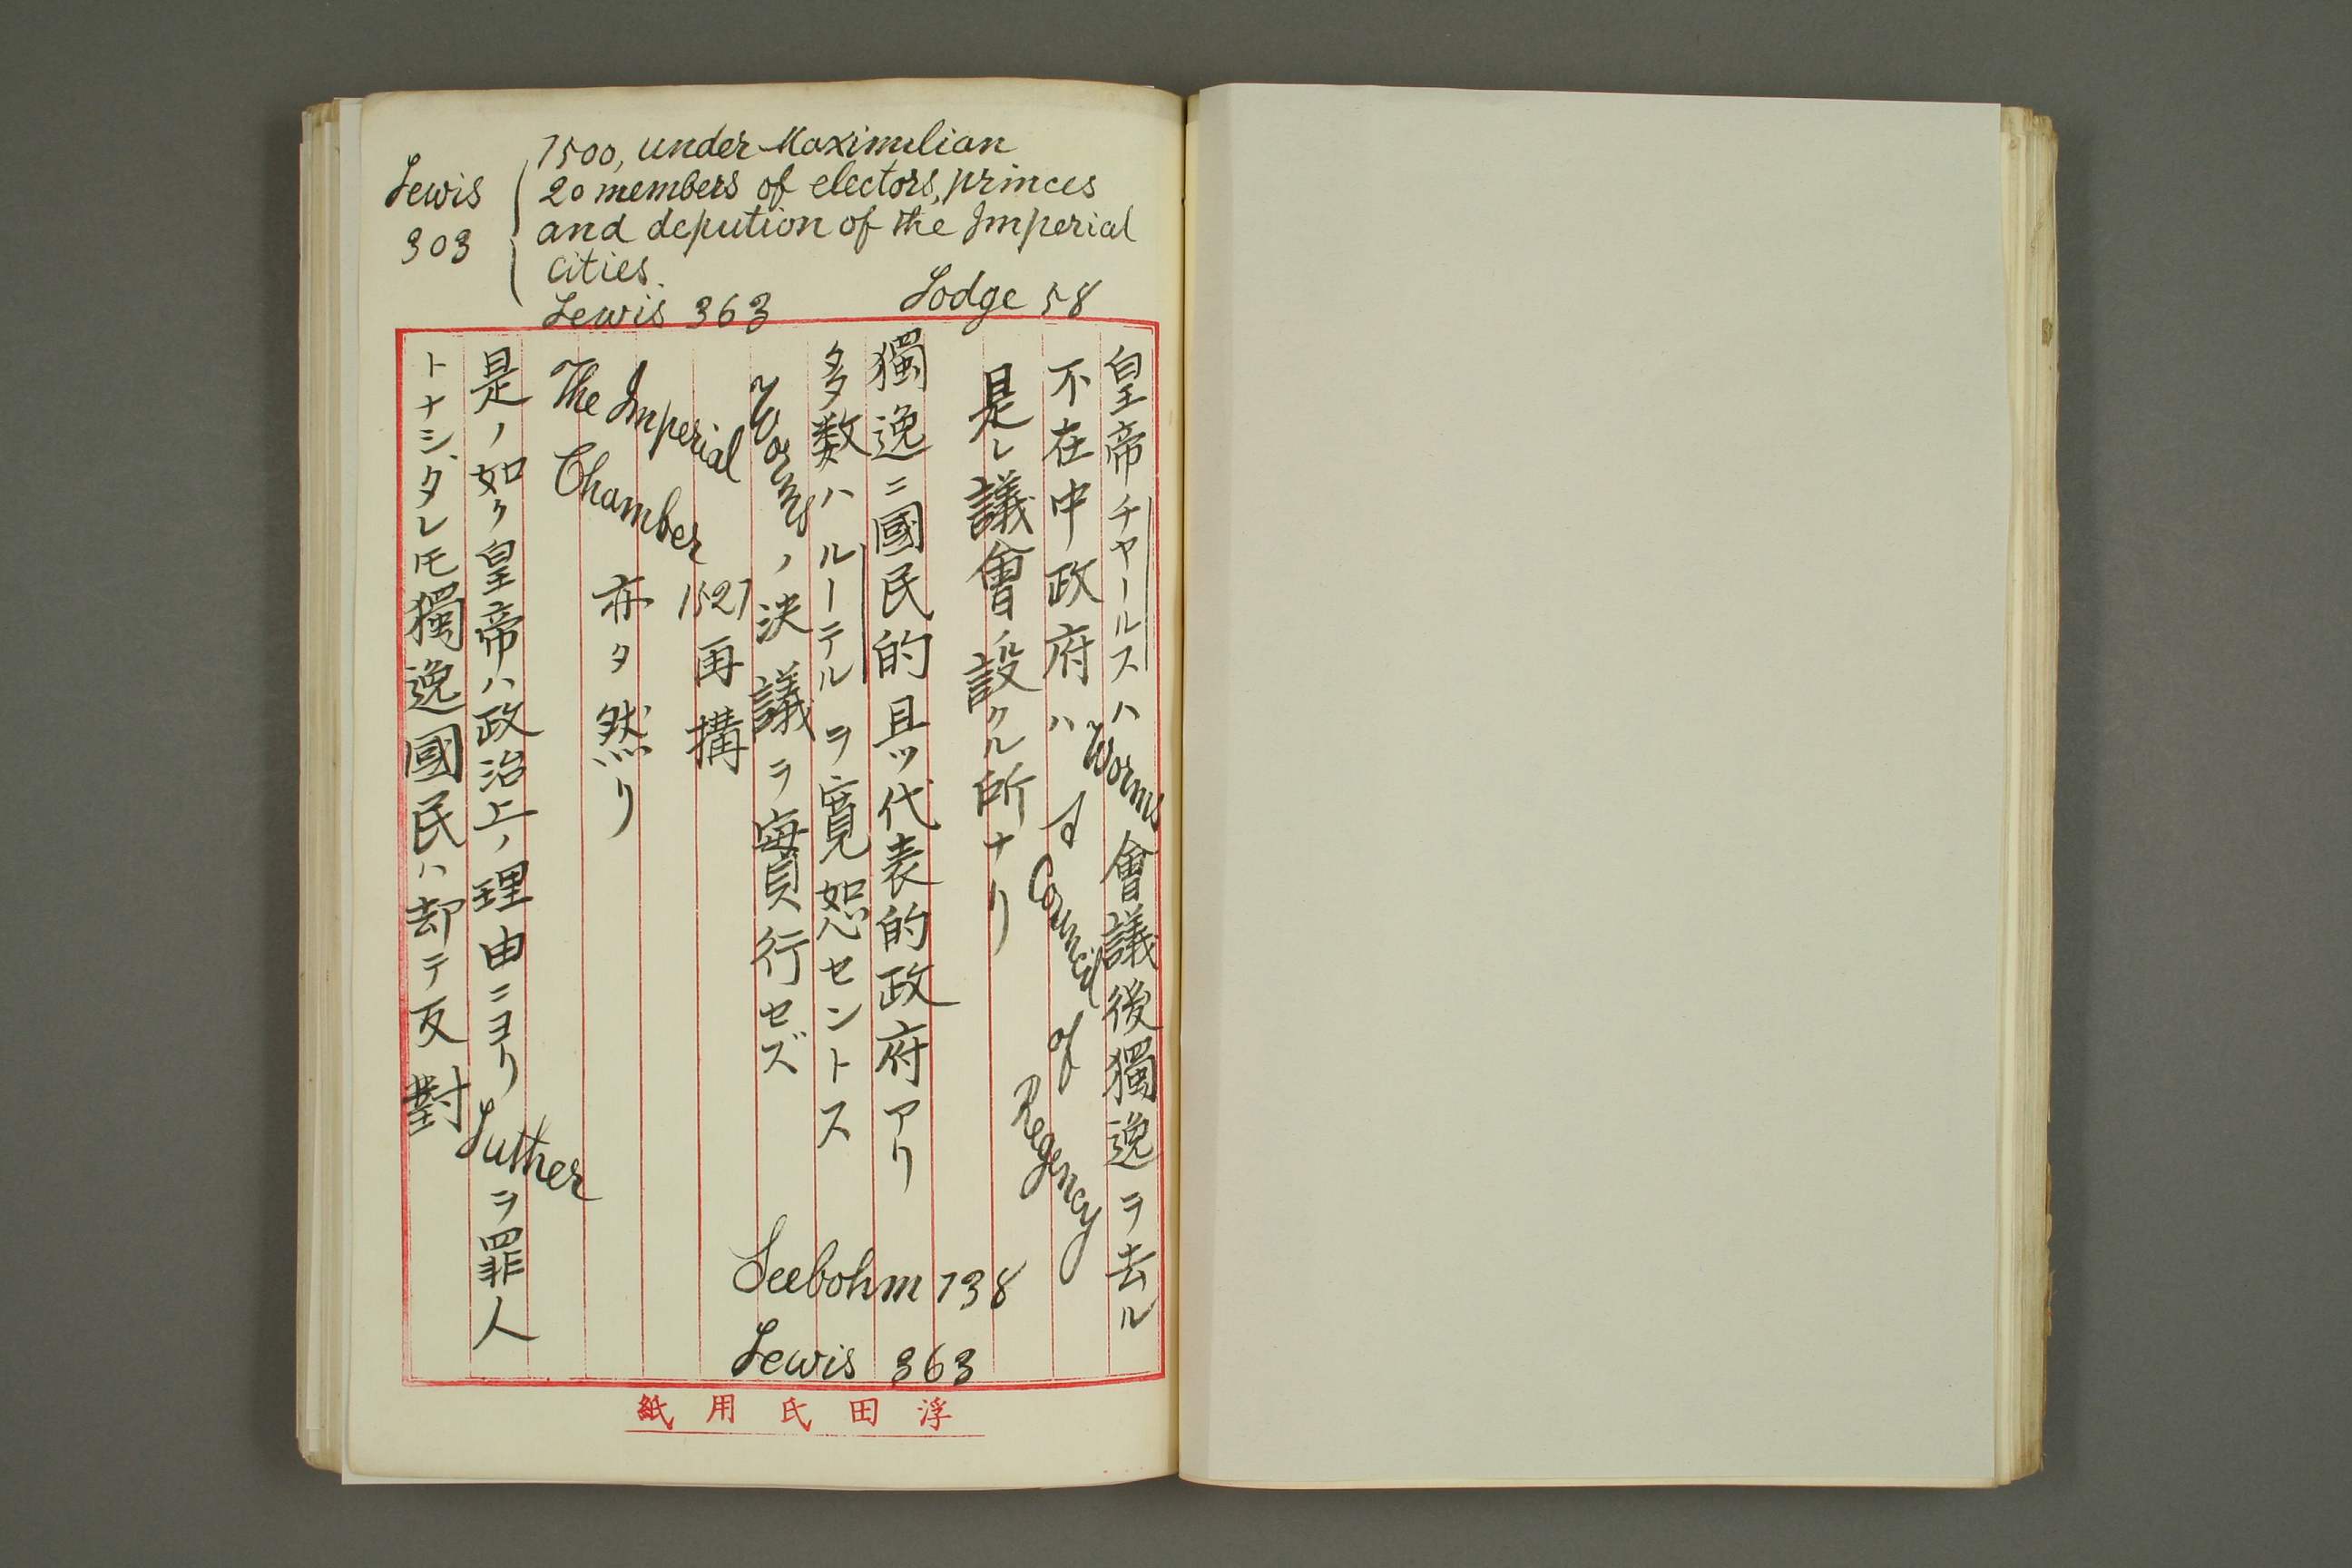 Lewis 303
1500, under Maximilian
20 members of electors, princes
and depution of the Imperial
cities.
Lewis 363
Lodge 58
皇帝チャールスハWorms會議後獨逸ヲ去ル
不在中政府ハ Council of Regency
是レ議會ノ設クル所ナリ
獨逸ニ國民的且ツ代表的政府アリ
多数ハルーテルヲ寛恕セントス
Wormsノ決議ヲ實行セズ
Seebohm 138
Lewis 363
1527再搆
The Imperial
Chamber
亦タ然リ
是ノ如ク皇帝ハ政治上ノ理由ニヨリLutherヲ罪人
トナシタレ𪜈獨逸國民ハ却テ反對
浮田氏用紙